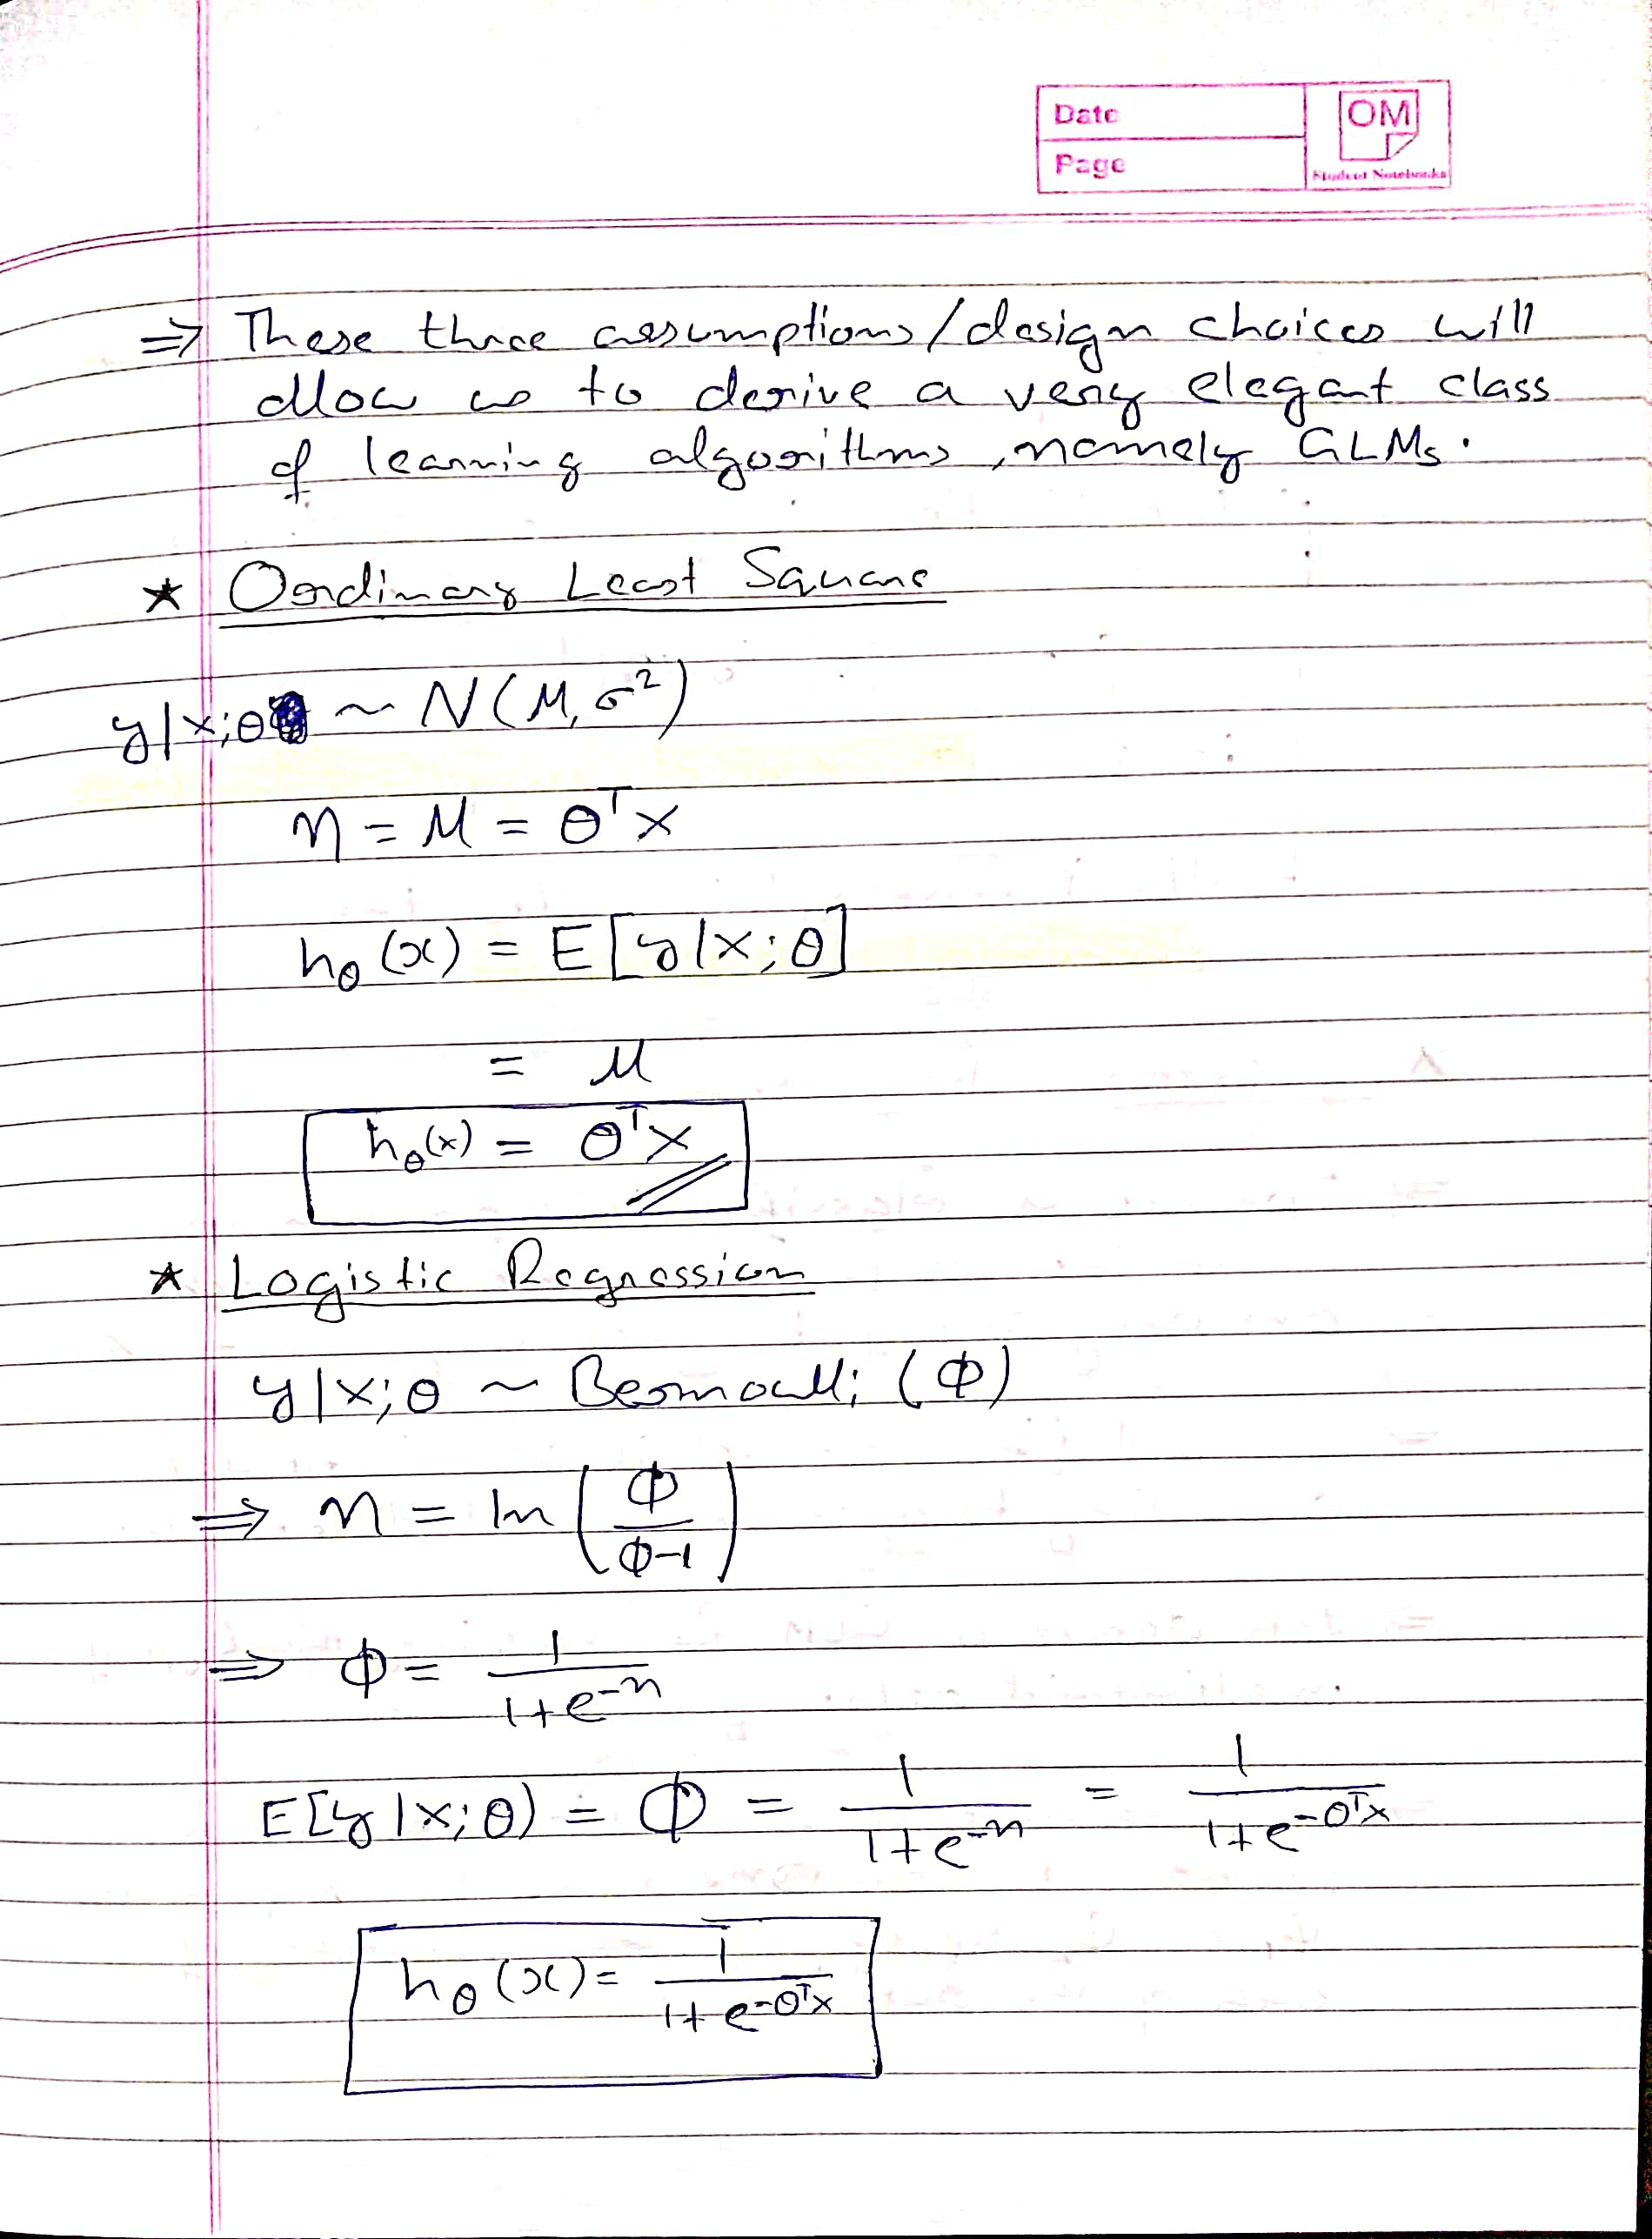 Date
Page
OM
Student Notebooks
⇒ These three assumptions/design choices will
allow us to derive a very elegant class
of learning algorithms, namely GLMs.
* Ordinary Least Square
y|x;θ ~ N(μ, σ²)
η = μ = θᵀx
h_θ(x) = E[y|x;θ]
= μ
h_θ(x) = θᵀx
* Logistic Regression
y|x;θ ~ Bernoulli(Φ)
⇒ η = ln(Φ/(Φ-1))
⇒ Φ = 1/(1+e^(-η))
E[y|x;θ) = Φ = 1/(1+e^(-η)) = 1/(1+e^(-θᵀx))
h_θ(x) = 1/(1+e^(-θᵀx))